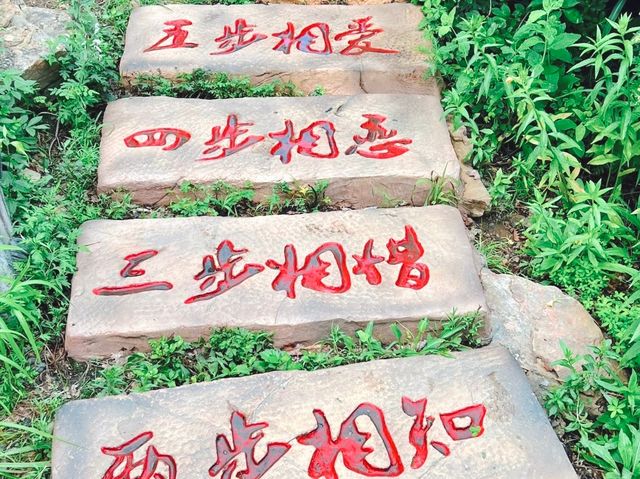 五步相爱
四步相恋
三步相惜
两步相知